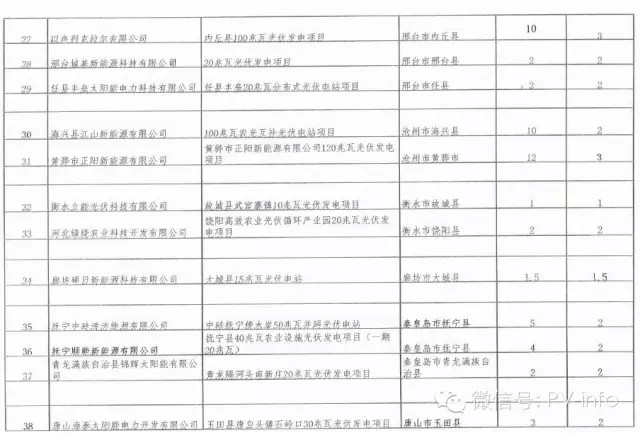 27 以色列克拉尔有限公司 内丘县100兆瓦光伏发电项目 邢台市内丘县 10 3
28 邢台城基新能源科技有限公司 20兆瓦光伏发电项目 邢台市邢台县 2 2
29 任县丰垒太阳能电力科技有限公司 任县丰垒20兆瓦分布式光伏电站项目 邢台市任县 2 2
30 海兴县江山新能源有限公司 100兆瓦农光互补光伏电站项目 沧州市海兴县 10 2
31 黄骅市正阳新能源有限公司 黄骅市正阳新能源有限公司120兆瓦光伏发电项目 沧州市黄骅市 12 3
32 衡水立能光伏科技有限公司 故城县武官寨镇10兆瓦光伏发电项目 衡水市故城县 1 1
33 河北锦绕农业科技开发有限公司 饶阳高效农业光伏循环产业园20兆瓦光伏发电项目 衡水市饶阳县 2 2
34 廊坊 新能源科技有限公司 大城县15兆瓦光伏电站 廊坊市大城县 1.5 1.5
35 抚宁中硅 能源有限公司 中硅抚宁 50兆瓦并网光伏电站 秦皇岛市抚宁县 5 2
36 抚宁顺能新能源有限公司 抚宁县40兆瓦农业设施光伏发电项目（一期20兆瓦） 秦皇岛市抚宁县 4 2
37 青龙满族自治县锦辉太阳能有限公司 青龙隔河头南新庄20兆瓦光伏发电项目 秦皇岛市青龙满族自治县 2 2
38 唐山海泰太阳能电力开发有限公司 玉田县唐自头镇石岭口30兆瓦光伏发电项目 唐山市玉田县 3 2
微信号: PV-info